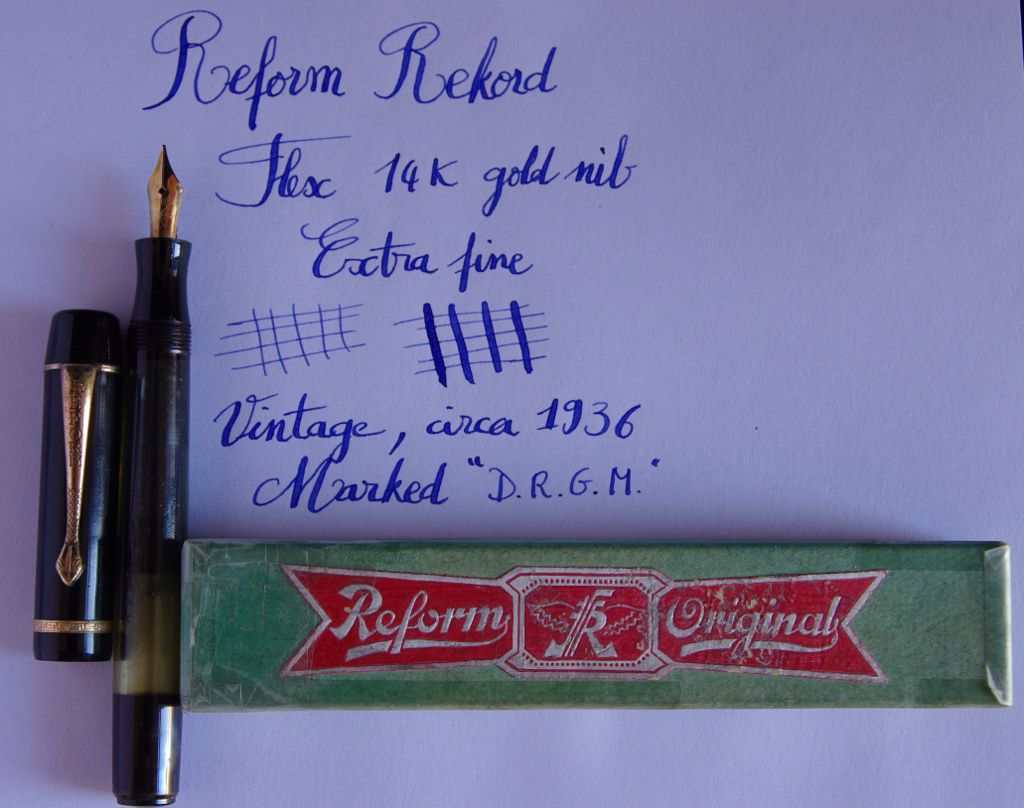 Reform Rekord
Flex 14K gold nib
Extra fine
Vintage, circa 1936
Marked "D.R.G.M."
Reform Original